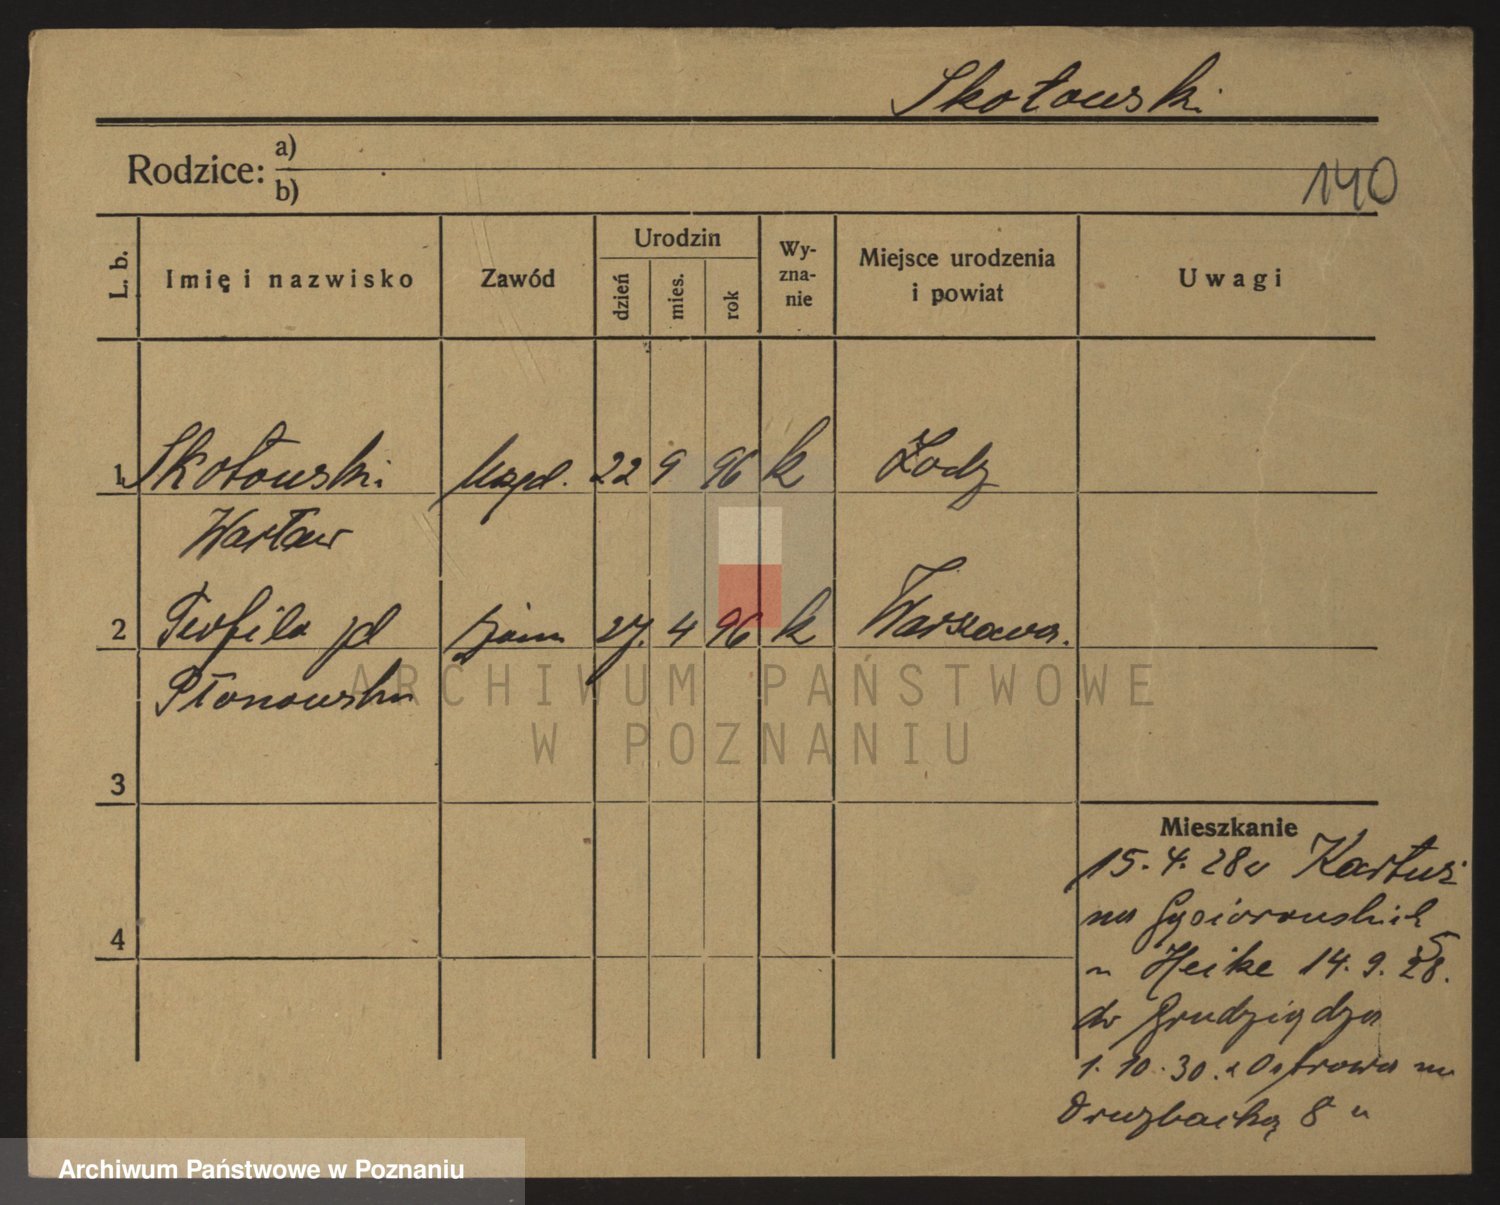 Skołowski
Rodzice: a)
b)
140
L. b.
Imię i nazwisko
Zawód
Urodzin
dzień
mies.
rok
Wy-
zna-
nie
Miejsce urodzenia
i powiat
Uwagi
1 Skołowski 22 9 96 k Łodz
Wacław
2 Teofila 27. 4 96 k Warszawa.
Płonowska
3
4
Mieszkanie
15. 4. 28 z Kartuz
na Gąsiorowskich
u Heike 14. 9. 28.
do Grudziądza
1. 10. 30. z Ostrowa na
Drużbacką 8
ARCHIWUM PAŃSTWOWE
W POZNANIU
Archiwum Państwowe w Poznaniu